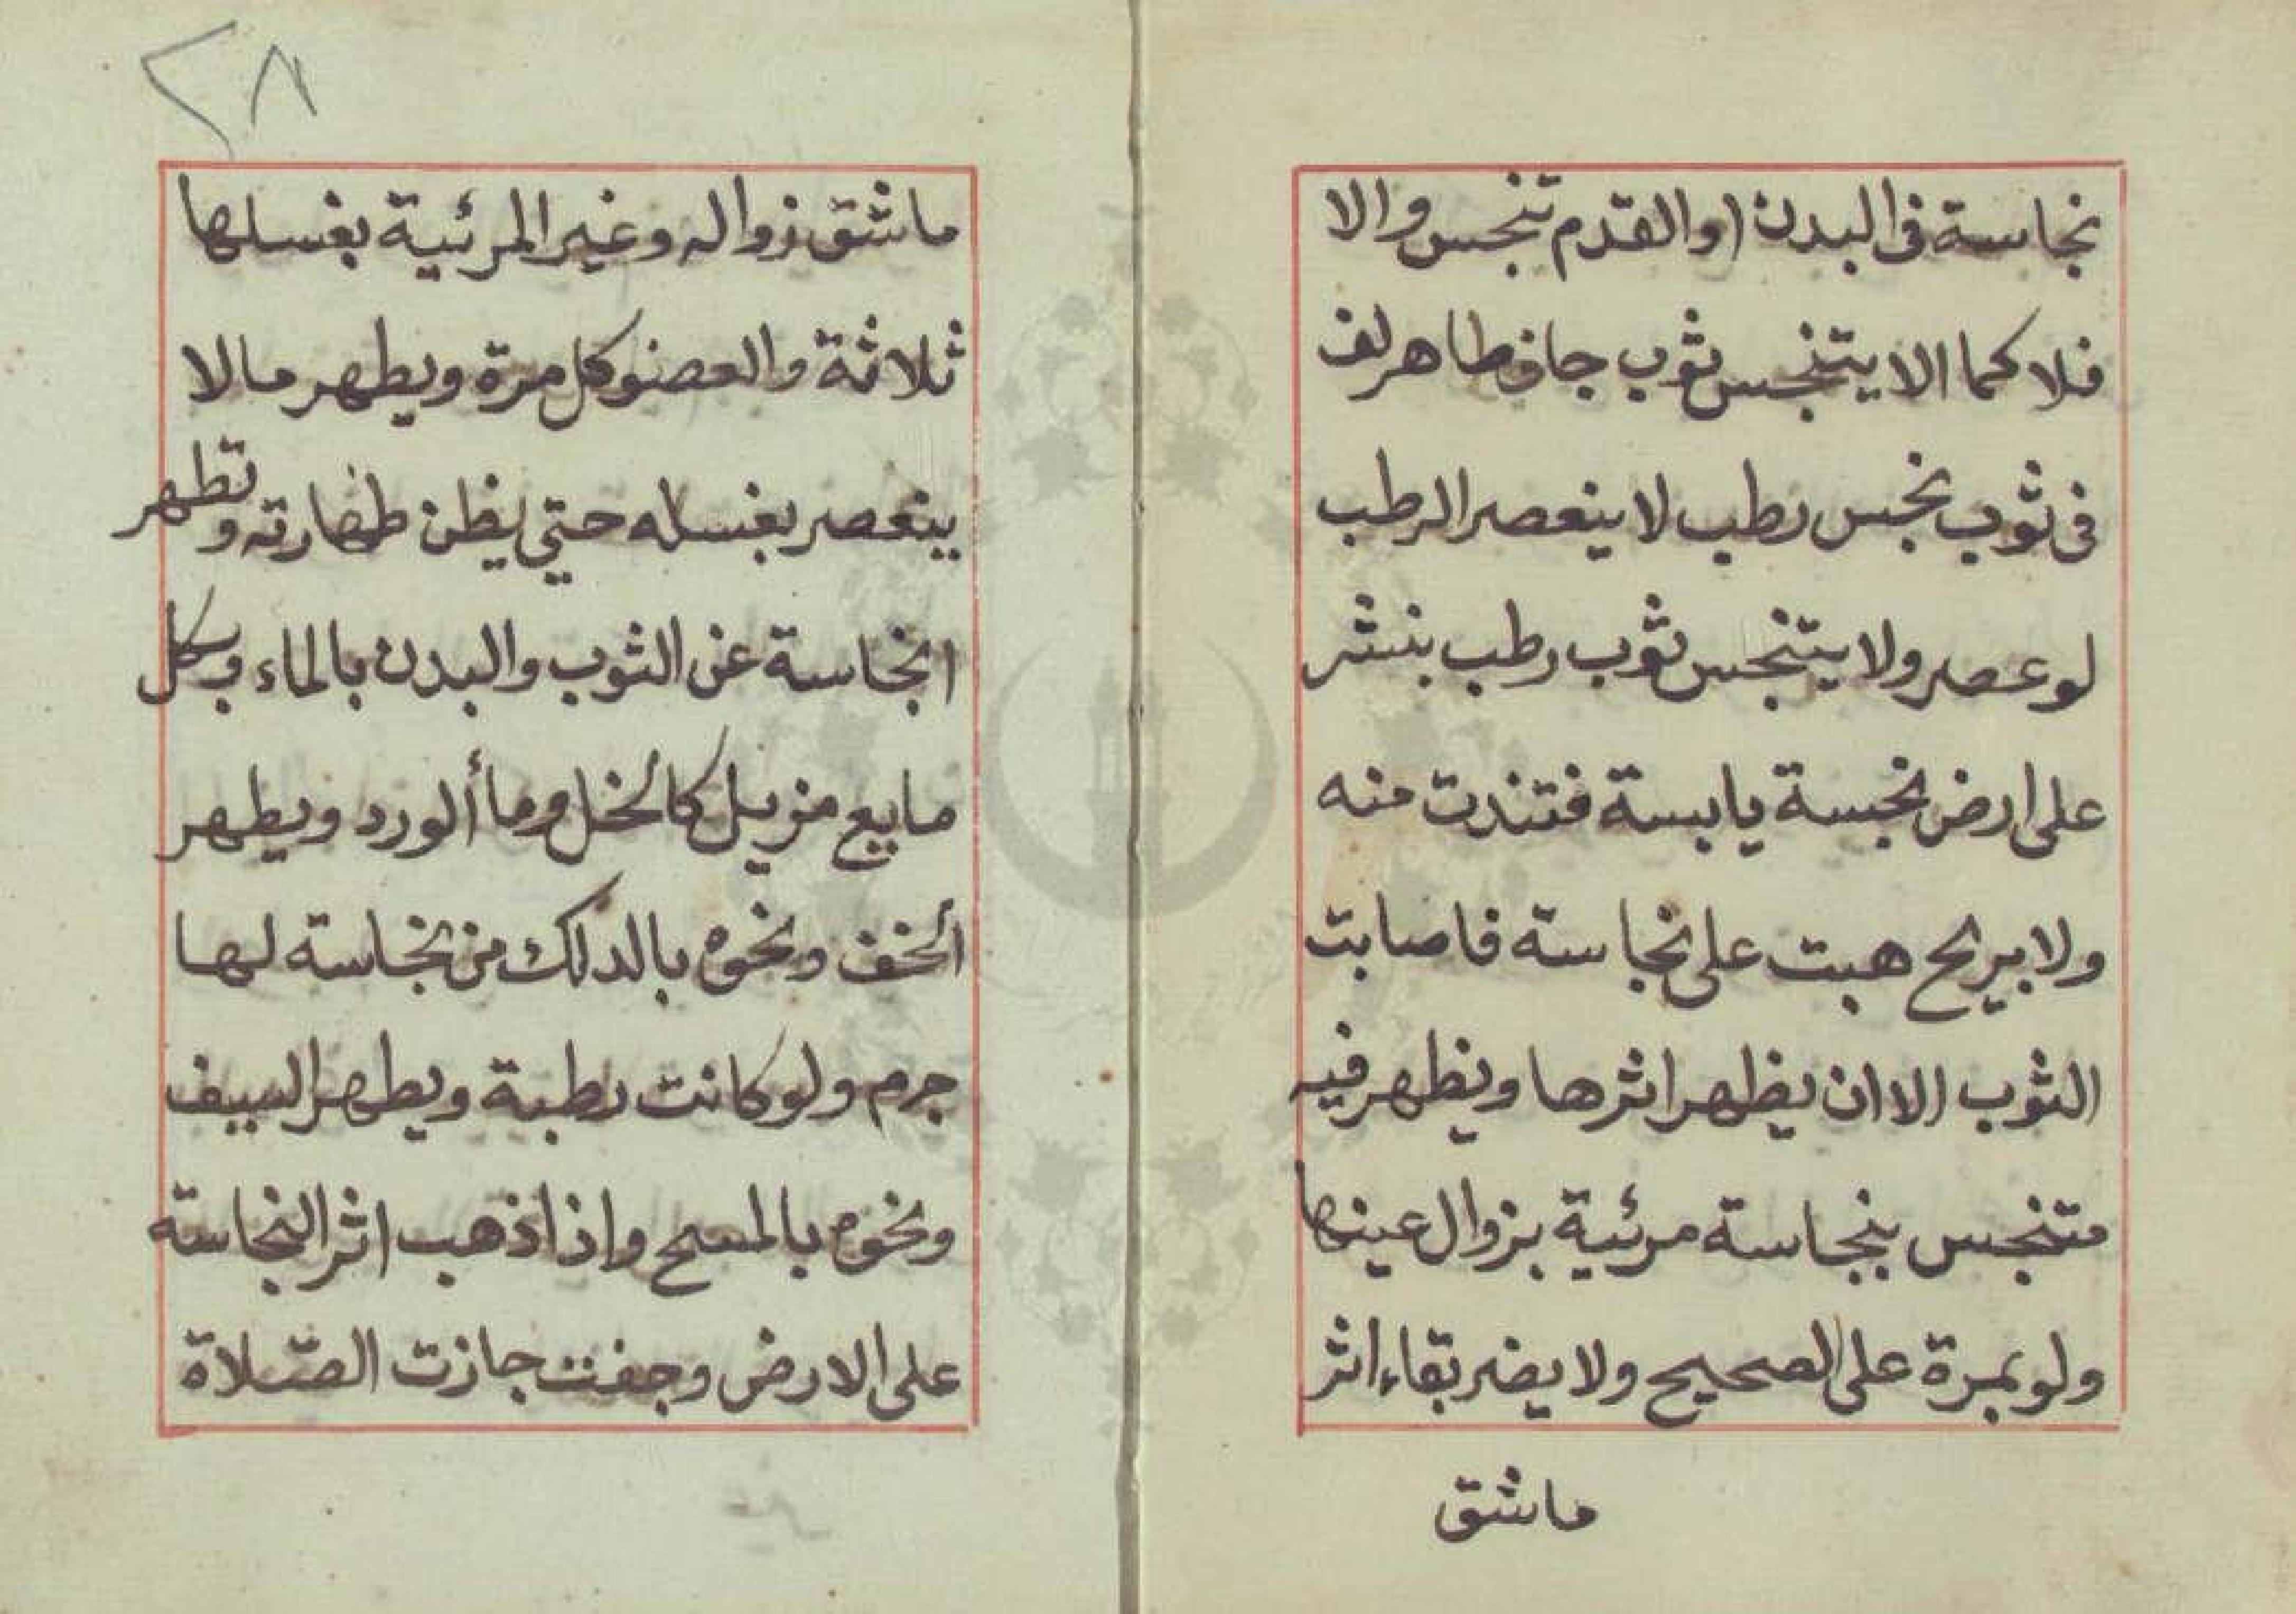 نجاسة فى البدن او القدم تنجس والا
فلا كما الا يتنجس ثوب جاف طاهر لف
فى ثوب نجس رطب لا ينعصر الرطب
لو عصر ولا يتنجس ثوب رطب بنشر
على ارض نجسة يابسة فتندت منه
ولا بريح هبت على نجاسة فاصابت
الثوب الا ان يظهر اثرها ويظهر فيه
متنجس بنجاسة مرئية بزوال عينها
ولو بمرة على الصحيح ولا يضر بقاء اثر
ماشق
٢٨
ماشق زواله وغير المرئية بغسلها
ثلاثة والعصنو كل مرة ويطهر مالا
ينعصر بغسله حتي يظن طهارته وتطهر
انجاسة عن الثوب والبدن بالماء وبكل
مايع مزيل كالخل وماألورد ويطهر
الخف ونحوه بالدلك من نجاسة لها
جرم ولو كانت رطبة ويطهر السيف
ونحوه بالمسح واذا ذهب اثر النجاسة
على الارض وجفت جازت الصّلاة